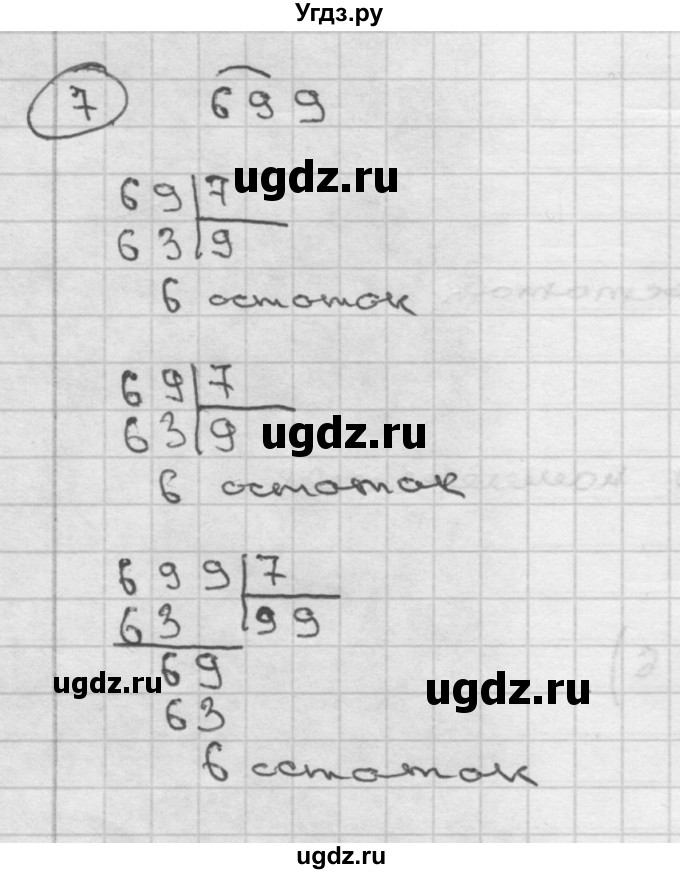 Угдз.ру
7 699
ugdz.ru
69 7
63 9
6 остаток
69 7
63 9
ugdz.ru
6 остаток
699 7
63 99
69
ugdz.ru
ugdz.ru
63
6 остаток
ugdz.ru